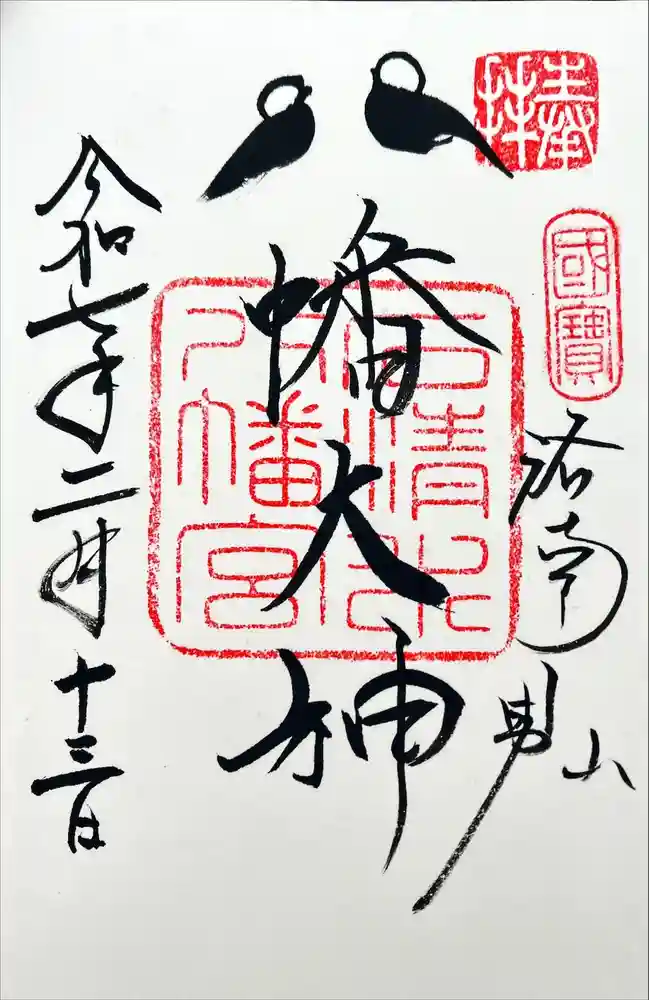 奉拝
國寶
洛南男山
八幡大神
石清水八幡宮
令和七年二月十三日